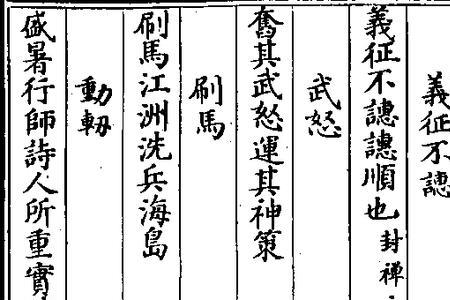 義征不譓
義征不譓譓順也 封禪
武怒
奮其武怒運其神策
刷馬
刷馬江洲洗兵海島
動軔
盛暑行師詩人所重實